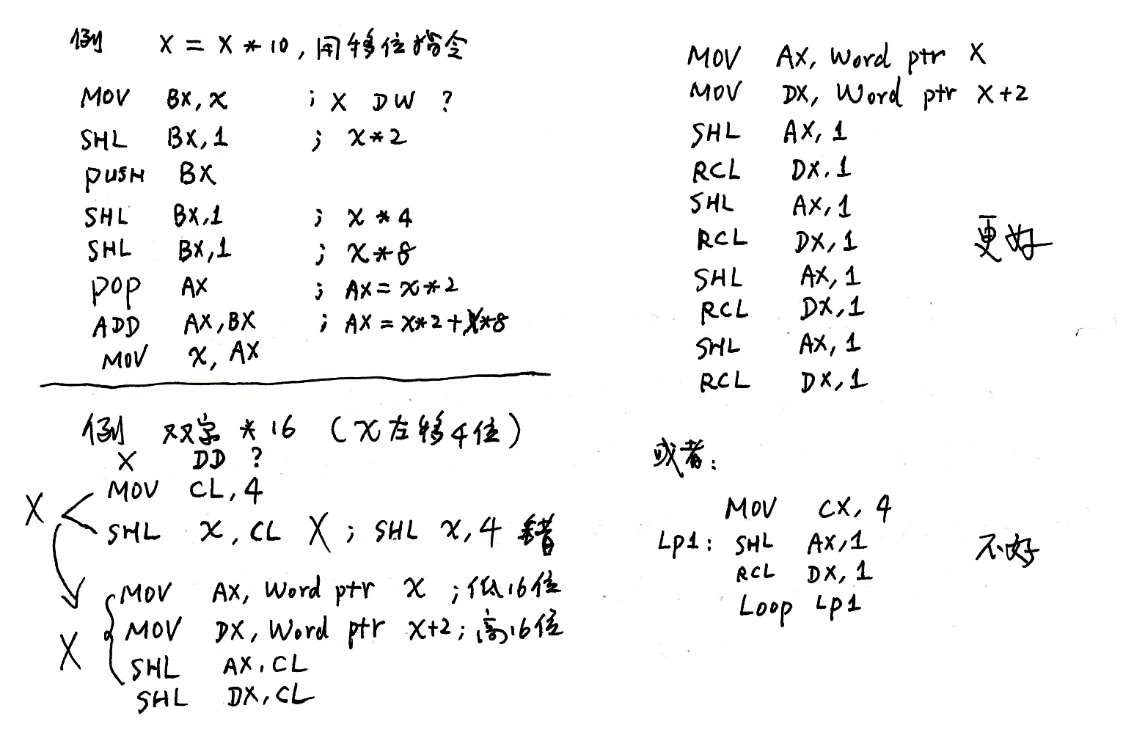 例 X = X * 10, 用移位指令
MOV BX, x ; X DW ?
SHL BX,1 ; x*2
PUSH BX
SHL BX,1 ; x*4
SHL BX,1 ; x*8
POP AX ; AX = x*2
ADD AX,BX ; AX = x*2+x*8
MOV x, AX
例 双字 * 16 (x左移4位)
X DD ?
X
MOV CL, 4
SHL x, CL X ; SHL x, 4 错
X
MOV AX, Word ptr x ; 低16位
MOV DX, Word ptr x+2 ; 高16位
SHL AX, CL
SHL DX, CL
MOV AX, Word ptr X
MOV DX, Word ptr X+2
SHL AX, 1
RCL DX, 1
SHL AX, 1
RCL DX, 1
更好
SHL AX, 1
RCL DX, 1
SHL AX, 1
RCL DX, 1
或者:
MOV CX, 4
Lp1: SHL AX, 1
不好
RCL DX, 1
Loop Lp1